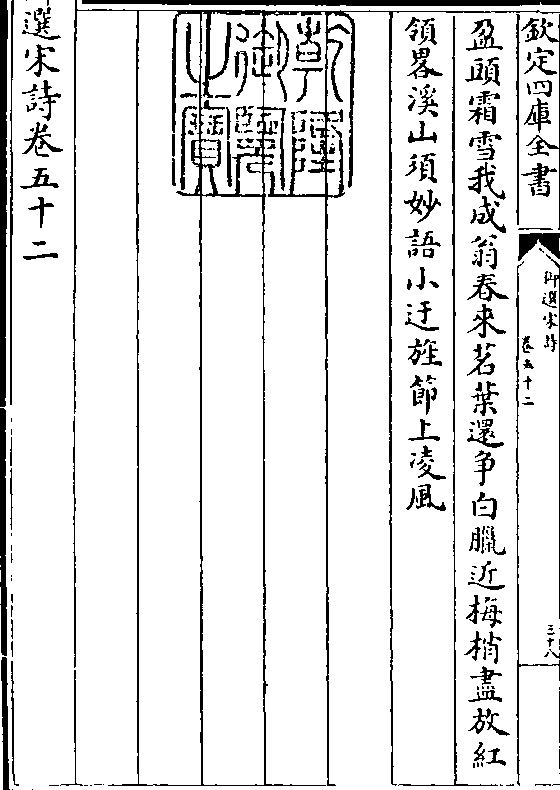 欽定四庫全書
御選宋詩
卷五十二
三十八
盈頭霜雪我成翁春來茗葉還争白臘近梅梢盡放紅
領畧溪山須妙語小迂旌節上凌風
乾隆御覽之寶
選宋詩卷五十二